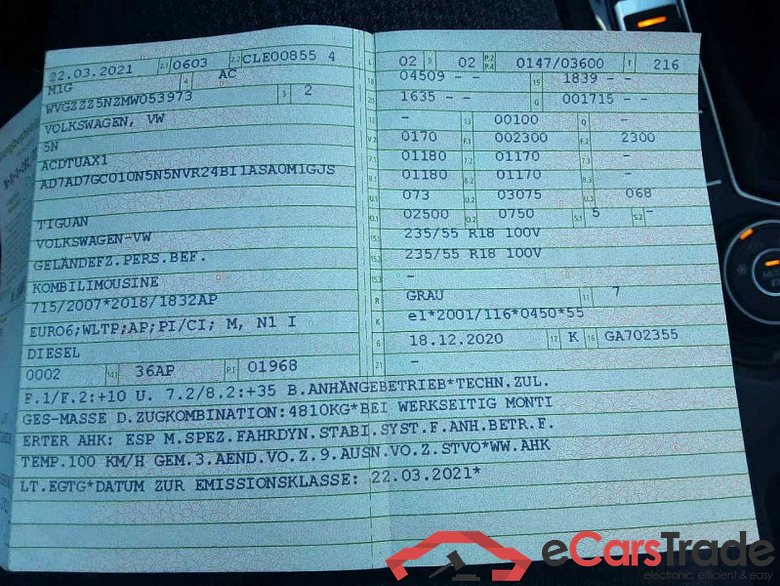 22.03.2021 2.1 0603 2.2 CLE00855 4 L 02 9 02 P.2 P.4 0147/03600 T 216
M1G 4 AC 18 04509 - - 19 1839 - -
WVGZZZ5NZMW053973 3 2 20 1635 - - G 001715 - -
VOLKSWAGEN, VW 12 - 13 00100 Q -
5N V.7 0170 F.1 002300 F.2 2300
ACDTUAX1 7.1 01180 7.2 01170 7.3 -
AD7AD7GC010N5N5NVR24BI1ASA0M1GJS 8.1 01180 8.2 01170 8.3 -
U.1 073 U.2 03075 U.3 068
TIGUAN O.1 02500 O.2 0750 S.1 5 S.2 -
VOLKSWAGEN-VW 15.1 235/55 R18 100V
GELÄNDEFZ.PERS.BEF. 15.2 235/55 R18 100V
KOMBILIMOUSINE 15.3 -
715/2007*2018/1832AP R GRAU 11 7
EURO6;WLTP;AP;PI/CI; M, N1 I K e1*2001/116*0450*55
DIESEL 6 18.12.2020 17 K 16 GA702355
0002 14.1 36AP P.1 01968 21 -
F.1/F.2:+10 U. 7.2/8.2:+35 B.ANHÄNGEBETRIEB*TECHN.ZUL.
GES-MASSE D.ZUGKOMBINATION:4810KG*BEI WERKSEITIG MONTI
ERTER AHK: ESP M.SPEZ.FAHRDYN.STABI.SYST.F.ANH.BETR.F.
TEMP.100 KM/H GEM.3.AEND.VO.Z.9.AUSN.VO.Z.STVO*WW.AHK
LT.EGTG*DATUM ZUR EMISSIONSKLASSE: 22.03.2021*
eCarsTrade
electronic, efficient & easy